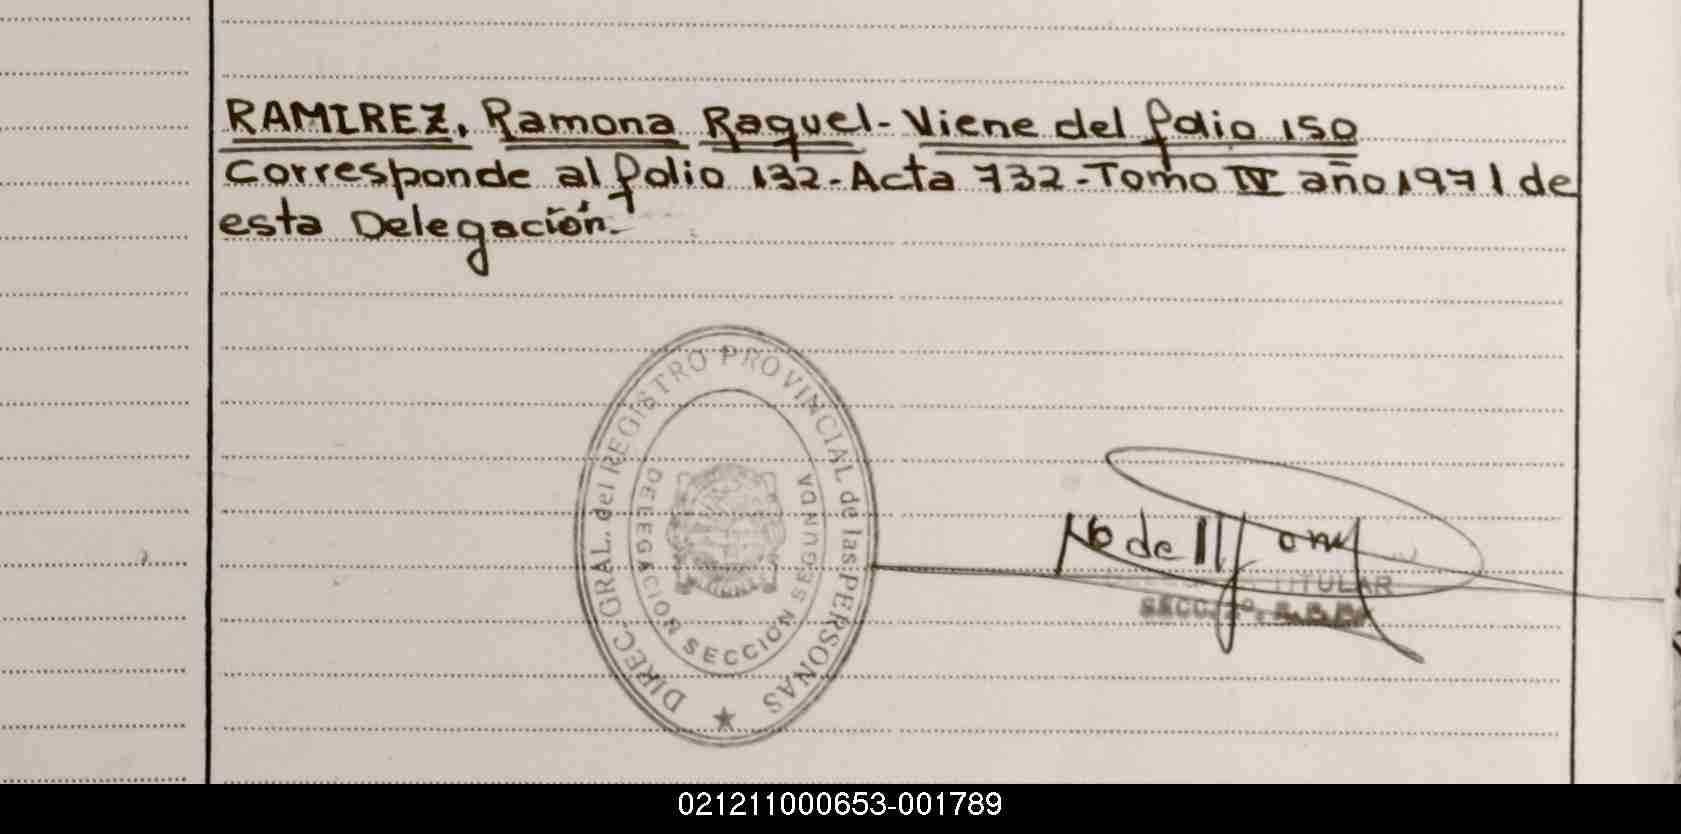 RAMIREZ, Ramona Raquel- Viene del folio 150
Corresponde al folio 132-Acta 732-Tomo IV año 1971 de
esta Delegación.-
DIREC. GRAL. del REGISTRO PROVINCIAL de las PERSONAS
DELEGACION SECCION SEGUNDA
TITULAR
SECC. 2º.
021211000653-001789